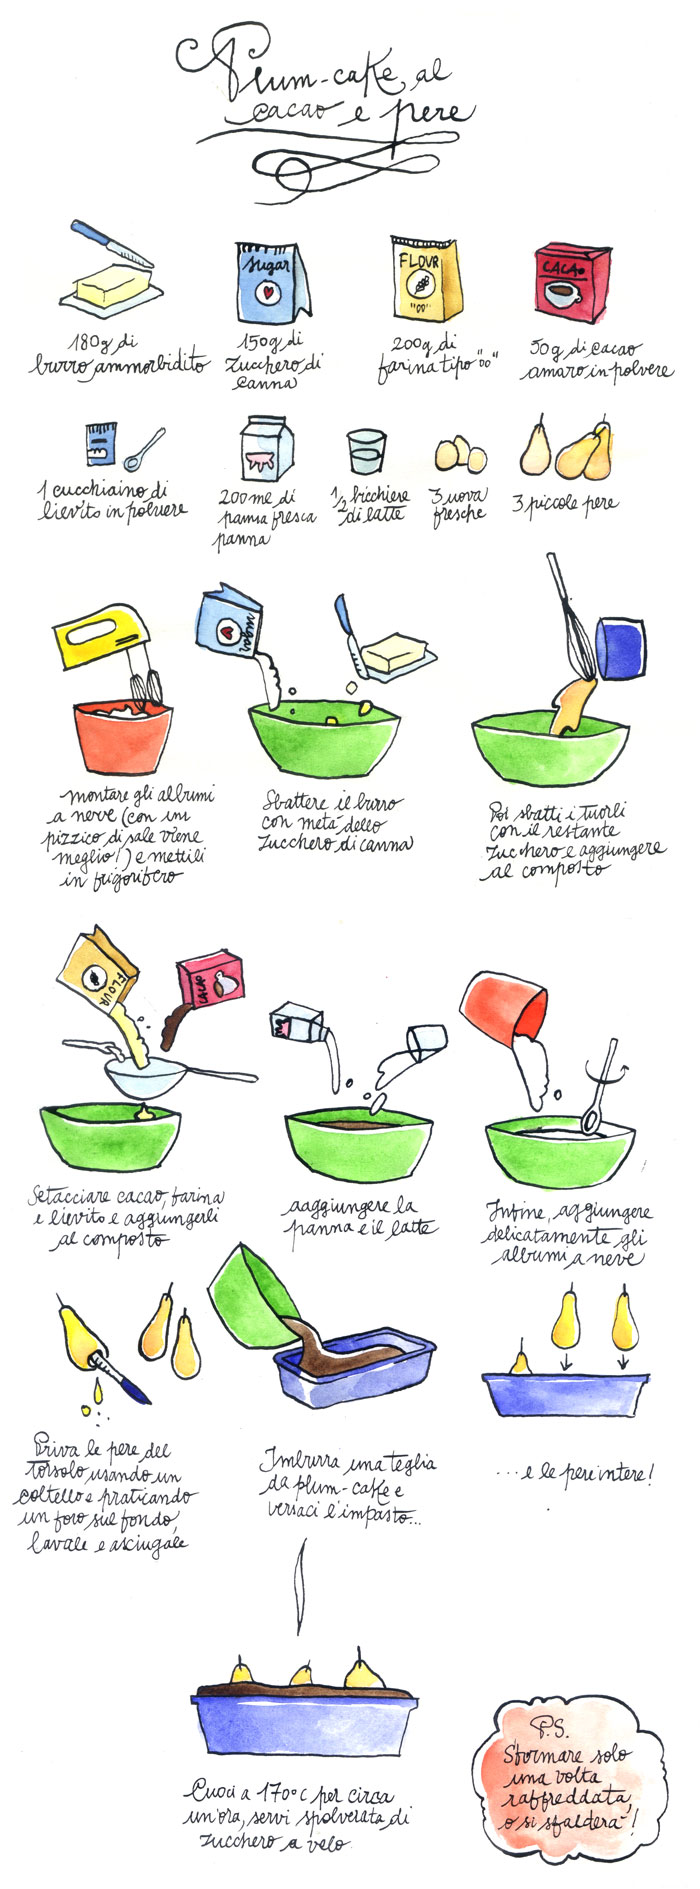 Plum-cake al
cacao e pere
sugar
FLOUR
"00"
CACAO
180g di
burro ammorbidito
150g di
zucchero di
canna
200g di
farina tipo "00"
50g di cacao
amaro in polvere
1 cucchiaino di
lievito in polvere
200ml di
panna fresca
panna
1/2 bicchiere
di latte
3 uova
fresche
3 piccole pere
sugar
montare gli albumi
a neve (con un
pizzico di sale viene
meglio!) e mettili
in frigorifero
Sbattere il burro
con metà dello
zucchero di canna
Poi sbatti i tuorli
con il restante
zucchero e aggiungere
al composto
FLOUR
CACAO
Setacciare cacao, farina
e lievito e aggiungerli
al composto
aaggiungere la
panna e il latte
Infine, aggiungere
delicatamente gli
albumi a neve
Priva le pere del
torsolo usando un
coltello e praticando
un foro sul fondo,
lavale e asciugale
Imburra una teglia
da plum-cake e
versaci l'impasto...
...e le pere intere!
Cuoci a 170°c per circa
un'ora, servi spolverata di
zucchero a velo
P.S.
Sformare solo
una volta
raffreddata,
o si sfalderà!